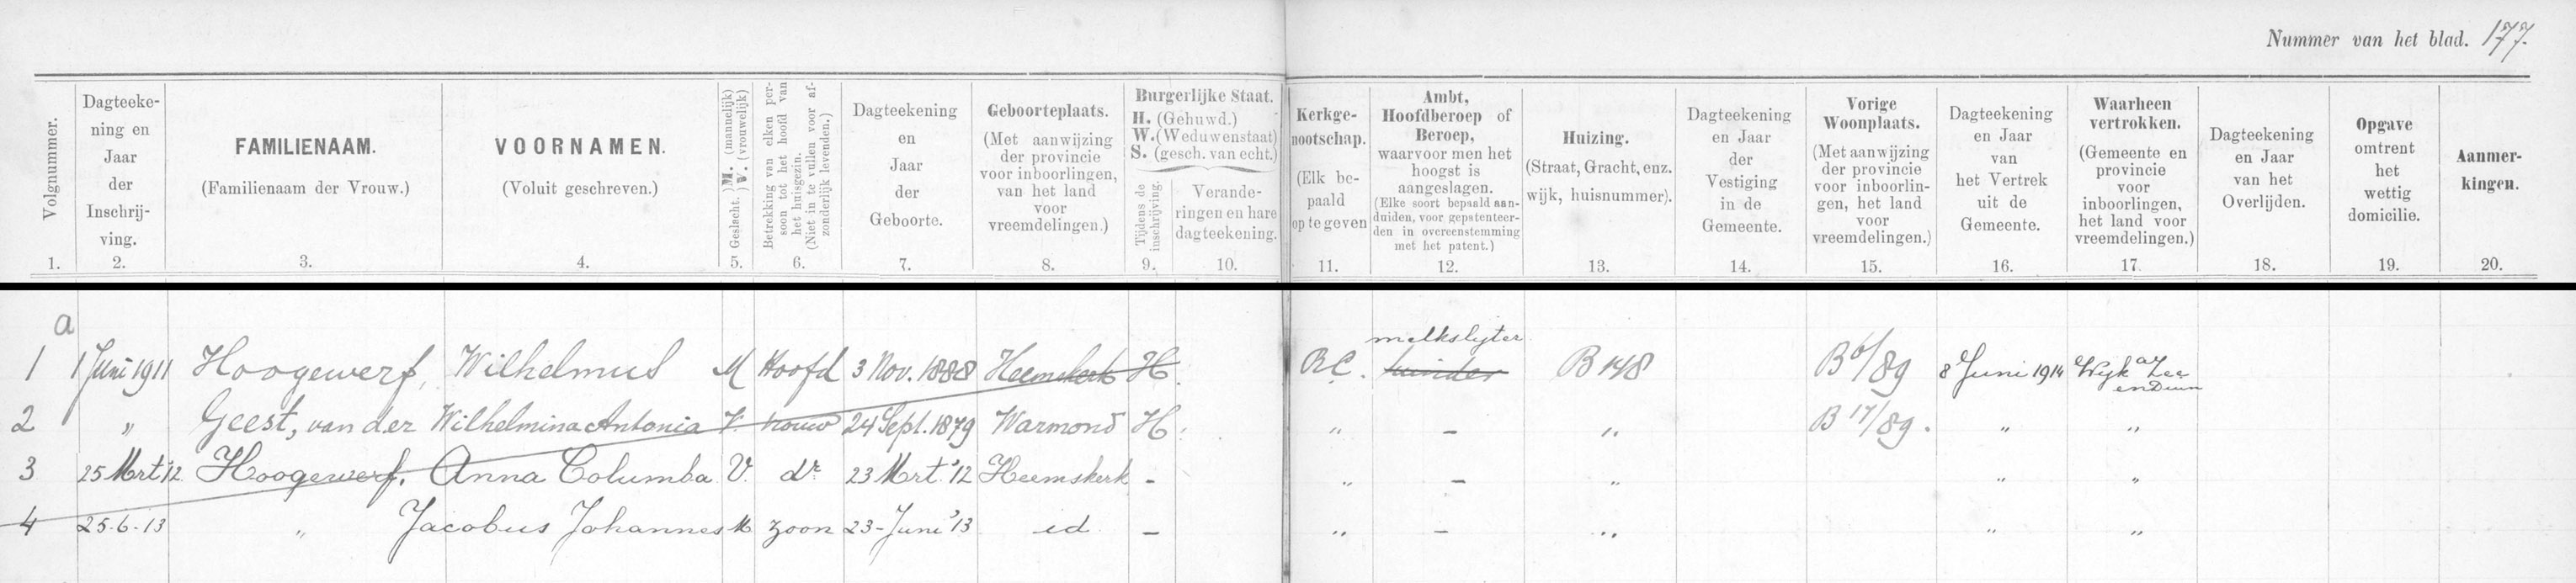 Nummer van het blad. 177.
Volgnummer.
1.
Dagteeke-
ning en
Jaar
der
Inschrij-
ving.
2.
FAMILIENAAM.
(Familienaam der Vrouw.)
3.
VOORNAMEN.
(Voluit geschreven.)
4.
Geslacht. } M. (mannelijk)
} V. (vrouwelijk)
5.
Betrekking van elken per-
soon tot het hoofd van
het huisgezin.
(Niet in te vullen voor af-
zonderlijk levenden.)
6.
Dagteekening
en
Jaar
der
Geboorte.
7.
Geboorteplaats.
(Met aanwijzing
der provincie
voor inboorlingen,
van het land
voor
vreemdelingen.)
8.
Burgerlijke Staat.
H. (Gehuwd.)
W. (Weduwenstaat)
S. (gesch. van echt.)
Tijdens de
inschrijving.
9.
Verande-
ringen en hare
dagteekening.
10.
Kerkge-
nootschap.
(Elk be-
paald
op te geven
11.
Ambt,
Hoofdberoep of
Beroep,
waarvoor men het
hoogst is
aangeslagen.
(Elke soort bepaald aan-
duiden, voor gepatenteer-
den in overeenstemming
met het patent.)
12.
Huizing.
(Straat, Gracht, enz.
wijk, huisnummer).
13.
Dagteekening
en Jaar
der
Vestiging
in de
Gemeente.
14.
Vorige
Woonplaats.
(Met aanwijzing
der provincie
voor inboorlin-
gen, het land
voor
vreemdelingen.)
15.
Dagteekening
en Jaar
van
het Vertrek
uit de
Gemeente.
16.
Waarheen
vertrokken.
(Gemeente en
provincie
voor
inboorlingen,
het land voor
vreemdelingen.)
17.
Dagteekening
en Jaar
van het
Overlijden.
18.
Opgave
omtrent
het
wettig
domicilie.
19.
Aanmer-
kingen.
20.
a
melkslijter
1 1 Juni 1911 Hoogewerf, Wilhelmus M Hoofd 3 Nov. 1888 Heemskerk H. R.C. tuinder B 148 B 6/89 8 Juni 1914 Wijk a Zee
en Duin
2 " Geest, van der Wilhelmina Antonia V. vrouw 24 Sept. 1879 Warmond H. " - " B 17/89. " "
3 25 Mrt '12 Hoogewerf. Anna Columba V. dr 23 Mrt. '12 Heemskerk - " - " " "
4 25-6-13 " Jacobus Johannes M zoon 23-Juni '13 id - " - " " "